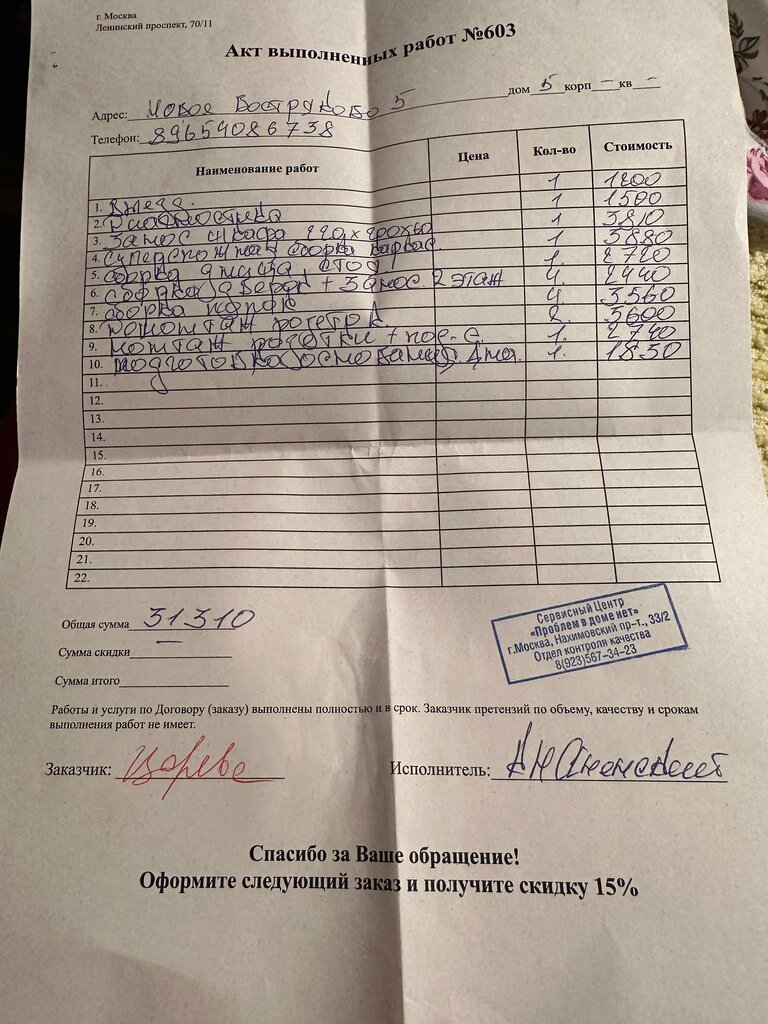 г. Москва
Ленинский проспект, 70/11
Акт выполненных работ №603
Адрес: Новое Востряково 5 дом 5 корп – кв –
Телефон: 89659086738
Наименование работ Цена Кол-во Стоимость
1. Выезд. 1 1200
2. Диагностика 1 1500
3. Занос шкафа 1 3810
4. сборка каркас 1 3880
5. сборка 1. 2720
6. сборка дверей + Занос. 2 этаж 4.
7. сборка полок 4. 3560
8. Демонтаж розетки. 2. 3600
9. монтаж розетки + 1. 2740
10. подготовка основания 1. 1830
11.
12.
13.
14.
15.
16.
17.
18.
19.
20.
21.
22.
Общая сумма 31310
Сумма скидки –
Сумма итого
Сервисный Центр
«Проблем в доме нет»
г.Москва, Нахимовский пр–т., 33/2
Отдел контроля качества
8(923)567–34–23
Работы и услуги по Договору (заказу) выполнены полностью и в срок. Заказчик претензий по объему, качеству и срокам
выполнения работ не имеет.
Заказчик: Исполнитель:
Спасибо за Ваше обращение!
Оформите следующий заказ и получите скидку 15%